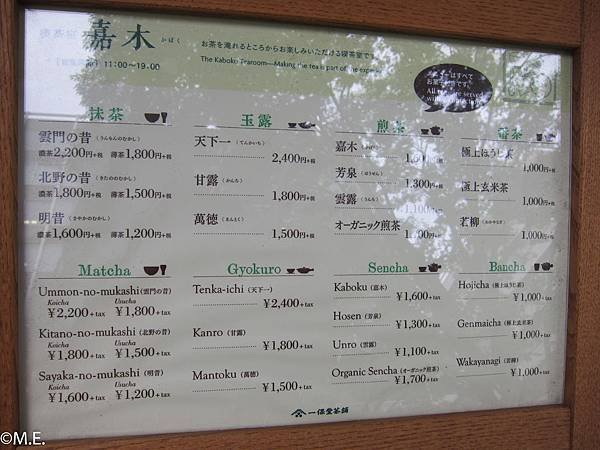 嘉木 かぼく
お茶を淹れるところからお楽しみいただける喫茶室です
The Kaboku Tearoom—Making the tea is part of the
11:00〜19:00
抹茶
雲門の昔（うんもんのむかし）
濃茶2,200円+税 薄茶1,800円+税
北野の昔（きたののむかし）
濃茶1,800円+税 薄茶1,500円+税
明昔（さやかのむかし）
濃茶1,600円+税 薄茶1,200円+税
玉露
天下一（てんかいち）
2,400円+税
甘露（かんろ）
1,800円+税
萬徳（まんとく）
1,500円+税
煎茶
嘉木（かぼく）
円+税
芳泉（ほうせん）
1,300円+税
雲露（うんろ）
1,100円+税
オーガニック煎茶
円+税
番茶
極上ほうじ茶
1,000円+税
極上玄米茶
1,000円+税
若柳（わかやなぎ）
1,000円+税
Matcha
Ummon-no-mukashi（雲門の昔）
Koicha Usucha
¥2,200+tax ¥1,800+tax
Kitano-no-mukashi（北野の昔）
Koicha Usucha
¥1,800+tax ¥1,500+tax
Sayaka-no-mukashi（明昔）
Koicha Usucha
¥1,600+tax ¥1,200+tax
Gyokuro
Tenka-ichi（天下一）
¥2,400+tax
Kanro（甘露）
¥1,800+tax
Mantoku（萬徳）
¥1,500+tax
Sencha
Kaboku（嘉木）
¥1,600+tax
Hosen（芳泉）
¥1,300+tax
Unro（雲露）
¥1,100+tax
Organic Sencha（オーガニック煎茶）
¥1,700+tax
Bancha
Hojicha（極上ほうじ茶）
¥1,000+tax
Genmaicha（極上玄米茶）
¥1,000+tax
Wakayanagi（若柳）
¥1,000+tax
一保堂茶舗
©M.E.